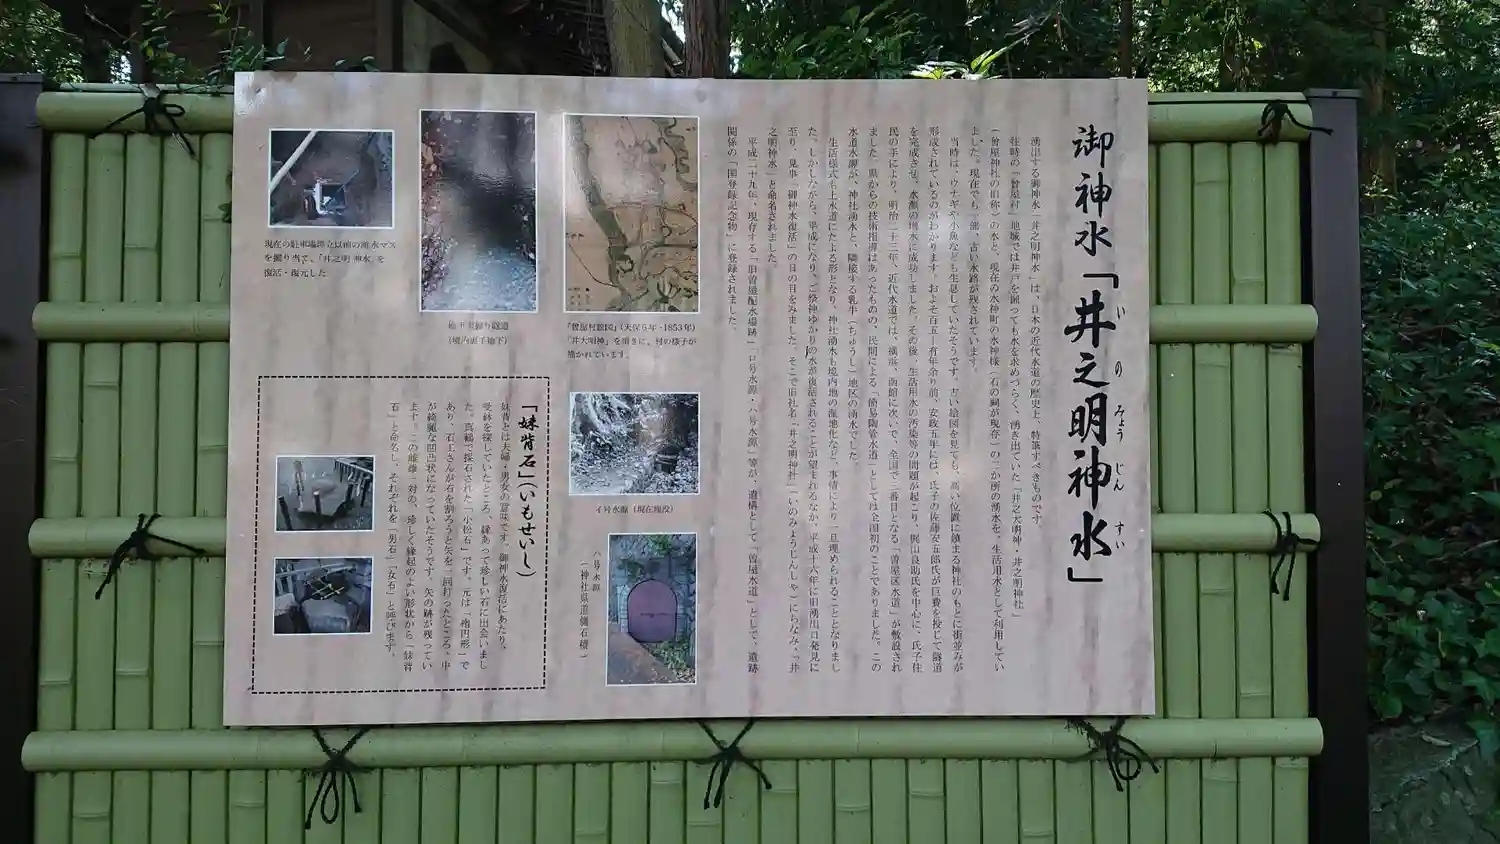 御神水「井之明神水」
い の みょう じん すい
湧出する御神水「井之明神水」は、日本の近代水道の歴史上、特筆すべきものです。
往時の「曽屋村」地域では井戸を掘っても水を求めづらく、湧き出ていた「井之大明神・井之明神社」
(曽屋神社の旧称)の水と、現在の水神町の水神様(石の祠が現存)の二か所の湧水を、生活用水として利用してい
ました。現在でも一部、古い水路が残されています。
当時は、ウナギや小魚なども生息していたそうです。古い絵図を見ても、高い位置に鎮まる神社のもとに街並みが
形成されているのがわかります。およそ百五十有年余り前、安政五年には、氏子の佐藤安五郎氏が巨費を投じて隧道
を完成させ、水量の増水に成功しました。その後、生活用水の汚染等の問題が起こり、梶山良助氏を中心に、氏子住
民の手により、明治二十三年、近代水道では、横浜、函館に次いで、全国で三番目となる「曽屋区水道」が敷設され
ました。県からの技術指導はあったものの、民間による「簡易陶管水道」としては全国初のことでありました。この
水道水源が、神社湧水と、隣接する乳牛(ちゅうし)地区の湧水でした。
生活様式も上水道にたよる形となり、神社湧水も境内地の湿地化など、事情により一旦埋められることとなりまし
た。しかしながら、平成になり、ご祭神ゆかりの水が復活されることが望まれるなか、平成十六年に旧湧出口発見に
至り、見事「御神水復活」の日の目をみました。そこで旧社名「井之明神社」(いのみょうじんしゃ)にちなみ、「井
之明神水」と命名されました。
平成二十九年、現存する「旧曽屋配水場跡」「ロ号水源・ハ号水源」等が、遺構として「曽屋水道」として、遺跡
関係の「国登録記念物」に登録されました。
「曽屋村絵図」(天保6年・1853年)
「井大明神」を頂きに、村の様子が
描かれています。
地下素掘り隧道
(境内裏手地下)
現在の駐車場埋立以前の湧水マス
を掘り当て、「井之明神水」を
復活・復元した
イ号水源(現在埋没)
ハ号水源
(神社県道側石積)
「妹背石」(いもせいし)
妹背とは夫婦・男女の意味です。御神水復活にあたり、
受鉢を探していたところ、縁あって珍しい石に出会いまし
た。真鶴で採石された「小松石」です。元は「楕円形」で
あり、石工さんが石を割ろうと矢を一回打ったところ、中
が綺麗な凹凸状になっていたそうです。矢の跡が残ってい
ます。この雌雄一対の、珍しく縁起のよい形状から「妹背
石」と命名し、それぞれを「男石」「女石」と呼びます。